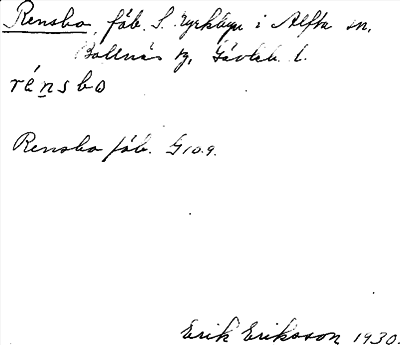 Rensbo, fäb. S. Kyrkbyn i Alfta sn,
Bollnäs tg, Gävleb. l.
rénsbo
Rensbo fäb. G 10 9.
Erik Eriksson 1930.